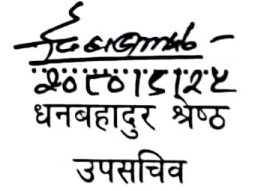 २०८०।८।२५
धनबहादुर श्रेष्ठ
उपसचिव